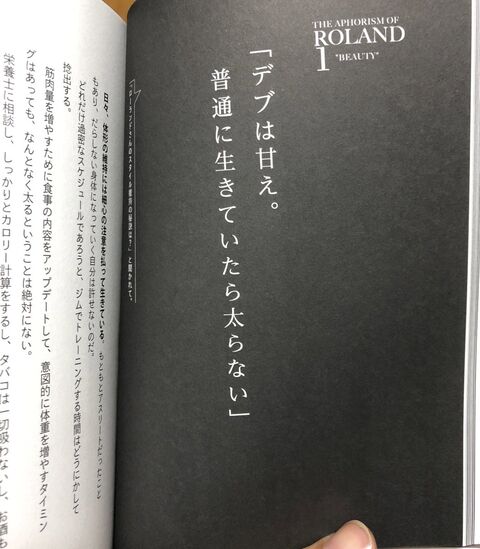 THE APHORISM OF
ROLAND
1
"BEAUTY"
「デブは甘え。
普通に生きていたら太らない」
「ローランドさんのスタイル維持の秘訣は？」と聞かれて。
日々、体形の維持には細心の注意を払って生きている。もともとアスリートだったこと
もあり、だらしない身体になっていく自分は許せないのだ。
どれだけ過密なスケジュールであろうと、ジムでトレーニングする時間はどうにかして
捻出する。
筋肉量を増やすために食事の内容をアップデートして、意図的に体重を増やすタイミン
グはあっても、なんとなく太るということは絶対にない。
栄養士に相談し、しっかりとカロリー計算をするし、タバコは一切吸わないし、お酒も